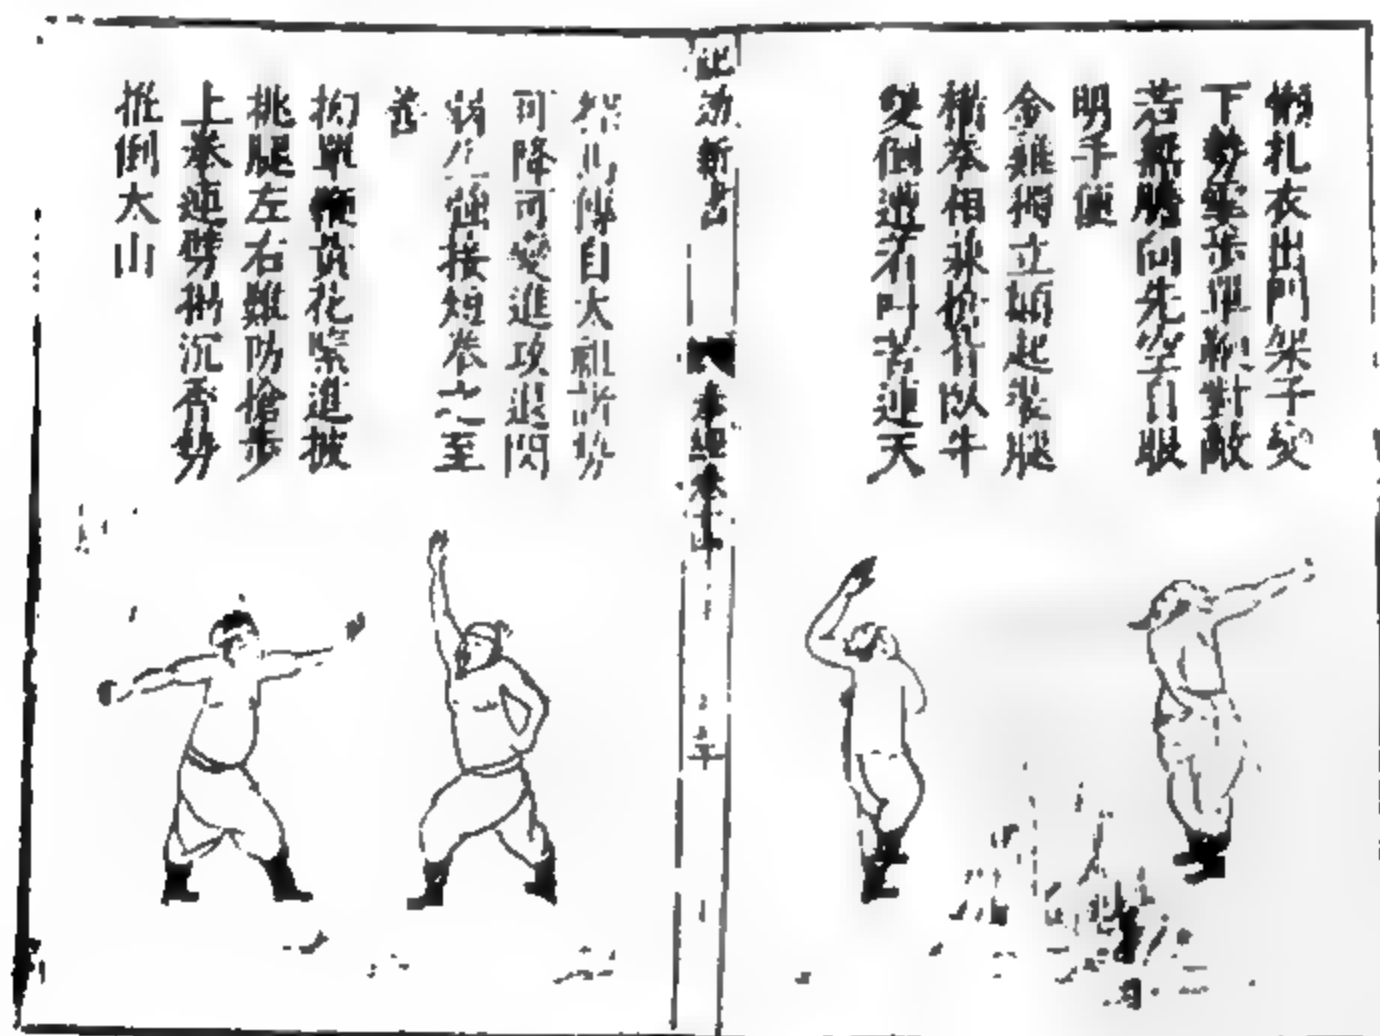 懶扎衣出門架子變
下勢霎步單鞭對敵
若無膽向先空自眼
明手便
金雞獨立顛起裝腿
橫拳相兼搶背臥牛
雙倒遭着叫苦連天
紀效新書
拳經卷十四
探馬傳自太祖諸勢
可降可變進攻退閃
弱生強接短拳之至
善
拗單鞭黃花緊進披
挑腿左右難防搶步
上拳連劈揭沉香勢
推倒太山